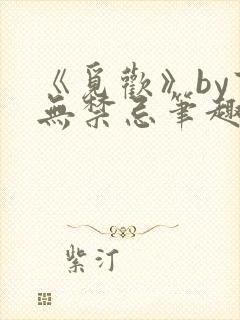 《覓歡》by
無禁忌筆趣
紫汀